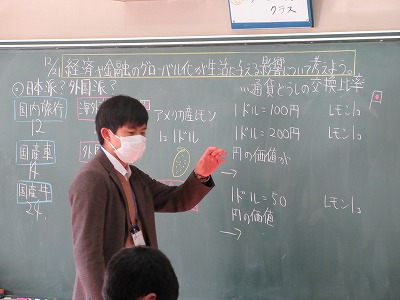 クラス
12/21 経済や金融のグローバル化が生活に与える影響について考えよう。
日本派？外国派？
…通貨どうしの交換比率
国内旅行
12
国産車
国産牛
24
アメリカ産レモン
1コ 1ドル
1ドル=100円 レモン1コ
1ドル=200円 レモン1コ
円の価値が
→
1ドル=50 レモン1コ
円の価値
→